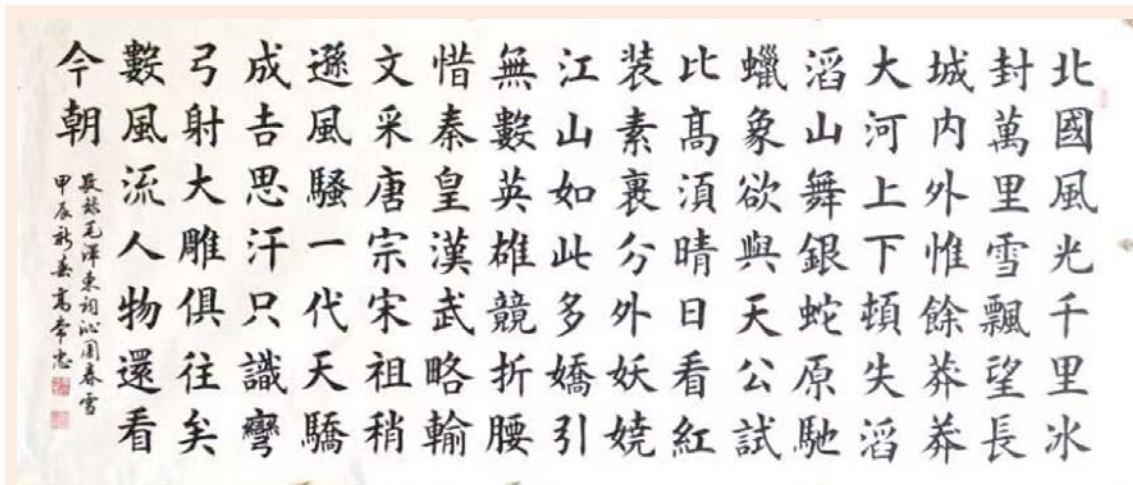 北國風光千里冰
封萬里雪飄望長
城内外惟餘莽莽
大河上下頓失滔
滔山舞銀蛇原馳
蠟象欲與天公試
比髙須晴日看紅
装素裹分外妖嬈
江山如此多嬌引
無數英雄競折腰
惜秦皇漢武略輸
文采唐宗宋祖稍
遜風騷一代天驕
成吉思汗只識彎
弓射大雕俱往矣
數風流人物還看
今朝
敬錄毛澤東詞沁園春雪
甲辰新春高常忠